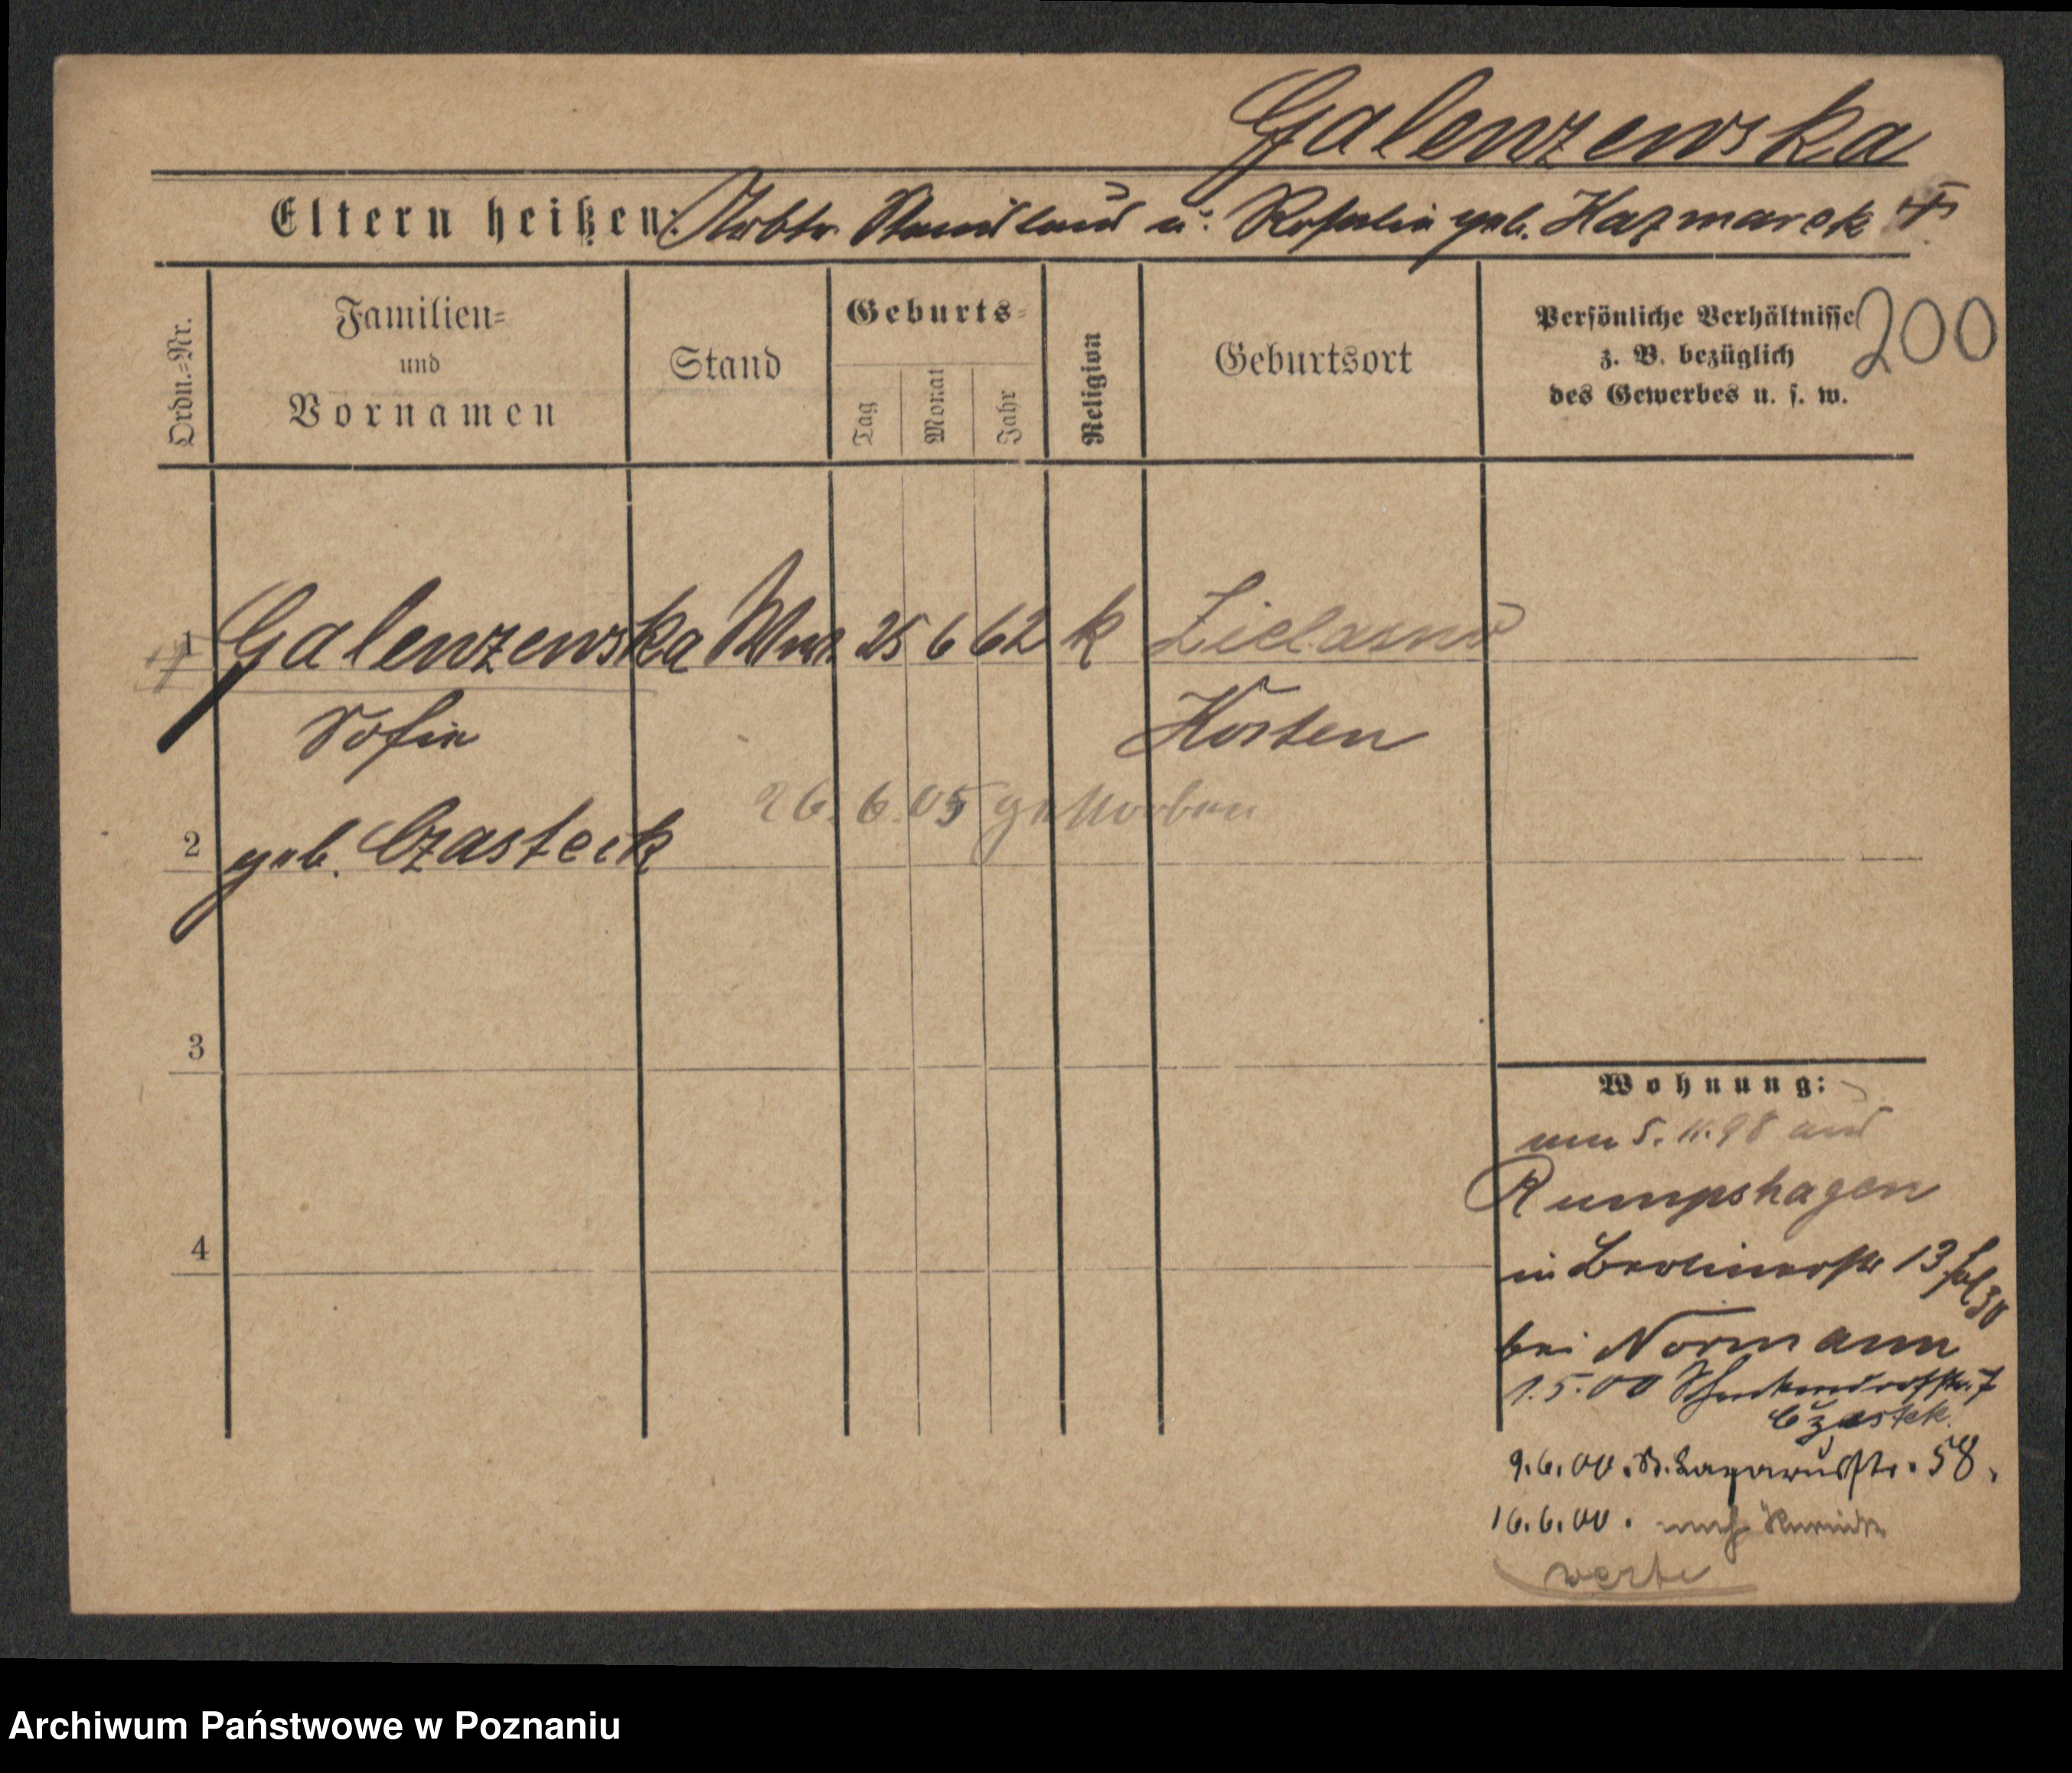 Galenzewska
Eltern heißen: Arbtr. Stanislaus u. Rosalia geb. Kazmarek †
Ordn.=Nr.
Familien=
und
Vornamen
Stand
Geburts=
Tag
Monat
Jahr
Religion
Geburtsort
Persönliche Verhältnisse
z. B. bezüglich
des Gewerbes u. s. w.
200
1 Galenzewska Wwe 25 6 62 k
Sofie Kosten
26. 6. 05 gestorben
2 geb. Czasteck
3
4
Wohnung:
am 5. 11. 98 aus
Rumpshagen
in Berlinerstr 13
bei Normann
1. 5. 00
Czastek
9. 6. 00. St. Lazarusstr. 58.
16. 6. 00. nach
verte
Archiwum Państwowe w Poznaniu